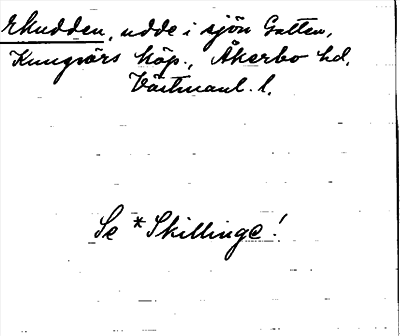 Ekudden, udde i sjön Galten,
Kungsörs köp., Åkerbo hd,
Västmanl. l.
Se *Skillinge!